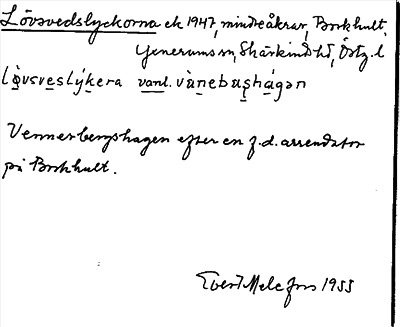 Lövsvedslyckorna ek 1947, mindre åkrar, Borkhult,
Yxnerums sn, Skärkinds hd, Östg. l
lö̀vsveslýkera vanl. vànebæshágan
Vennerbergshagen efter en f.d. arrendator
på Borkhult.
Evert Melefors 1955